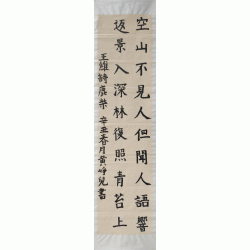 空山不見人但聞人語響
返景入深林復照青苔上
王維詩鹿柴 辛丑春月黃崢兒書